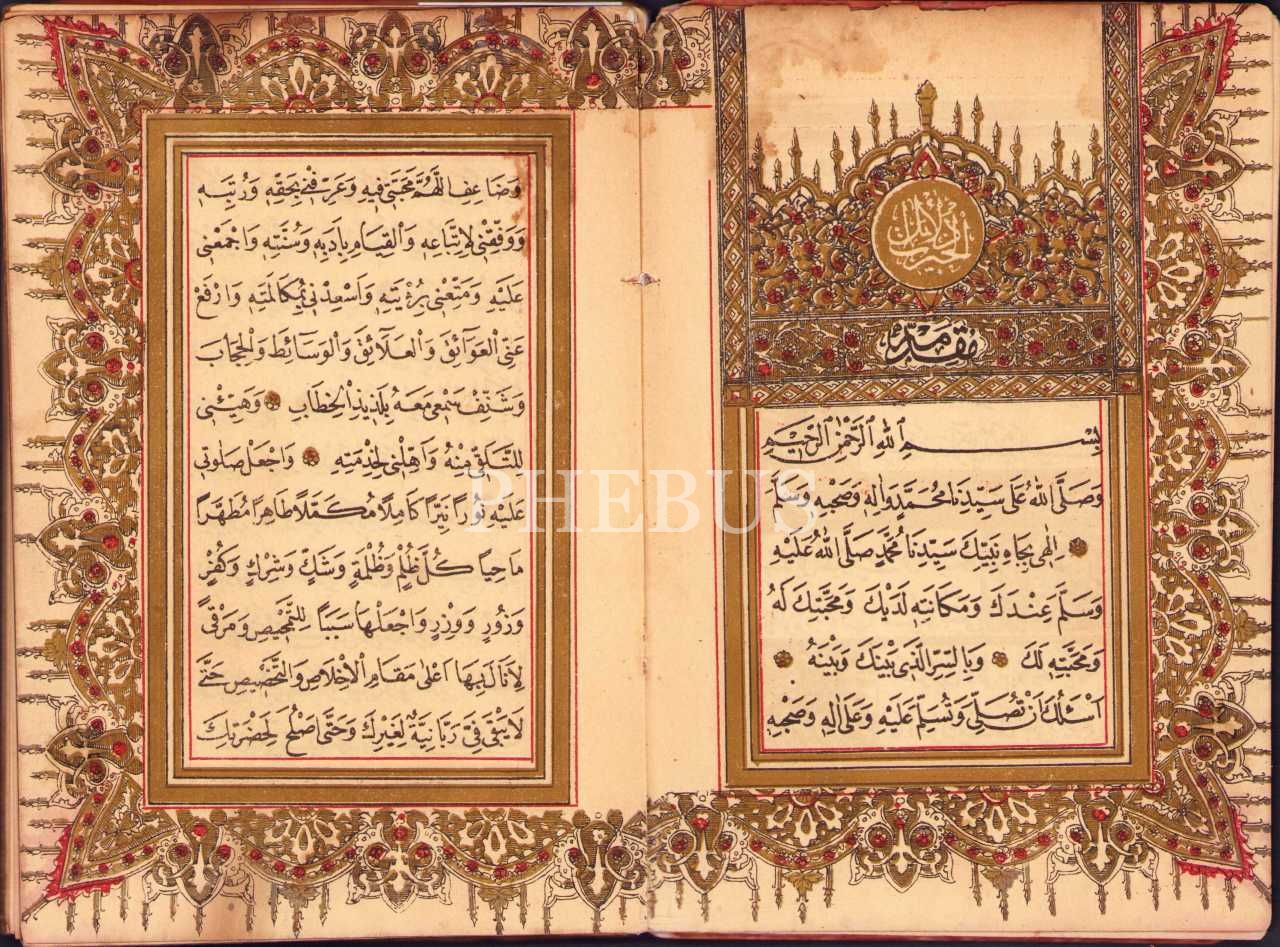 دلائل الخيرات
مقدمه
بِسْمِ اللهِ الرَّحْمٰنِ الرَّحِيمِ
وَصَلَّى اللهُ عَلَى سَيِّدِنَا مُحَمَّدٍ وَاٰلِهٖ وَصَحْبِهٖ وَسَلَّمَ
اِلٰهِى بِجَاهِ نَبِيِّكَ سَيِّدِنَا مُحَمَّدٍ صَلَّى اللهُ عَلَيْهِ
وَسَلَّمَ عِنْدَكَ وَمَكَانَتِهٖ لَدَيْكَ وَمَحَبَّتِكَ لَهُ
وَمَحَبَّتِهٖ لَكَ وَبِالسِّرِّ الَّذِى بَيْنَكَ وَبَيْنَهُ
اَسْئَلُكَ اَنْ تُصَلِّىَ وَتُسَلِّمَ عَلَيْهِ وَعَلَى اٰلِهٖ وَصَحْبِهٖ
وَضَاعِفِ اللّٰهُمَّ مَحَبَّتِى فِيهِ وَعَرِّفْنِى بِحَقِّهٖ وَرُتَبِهٖ
وَوَفِّقْنِى لِاتِّبَاعِهٖ وَالْقِيَامِ بِاَدَبِهٖ وَسُنَّتِهٖ وَاجْمَعْنِى
عَلَيْهِ وَمَتِّعْنِى بِرُؤْيَتِهٖ وَاَسْعِدْنِى بِمُكَالَمَتِهٖ وَارْفَعْ
عَنِّى الْعَوَائِقَ وَالْعَلَائِقَ وَالْوَسَائِطَ وَالْحِجَابَ
وَشَنِّفْ سَمْعِى مَعَهُ بِلَذِيذِ الْخِطَابِ وَهَيِّئْنِى
لِلتَّلَقِّى مِنْهُ وَاَهِّلْنِى لِخِدْمَتِهٖ وَاجْعَلْ صَلَوٰتِى
عَلَيْهِ نُورًا نَيِّرًا كَامِلًا مُكَمَّلًا طَاهِرًا مُطَهَّرًا
مَاحِيًا كُلَّ ظُلْمٍ وَظُلْمَةٍ وَشَكٍّ وَشِرْكٍ وَكُفْرٍ
وَزُورٍ وَوِزْرٍ وَاجْعَلْهَا سَبَبًا لِلتَّمْحِيصِ وَمَرْقًى
لِاَنَالَ بِهَا اَعْلٰى مَقَامِ الْاِخْلَاصِ وَالتَّخْصِيصِ حَتّٰى
لَا يَبْقٰى فِىَّ رَبَّانِيَّةٌ لِغَيْرِكَ وَحَتّٰى اَصْلُحَ لِحَضْرَتِكَ
PHEBUS